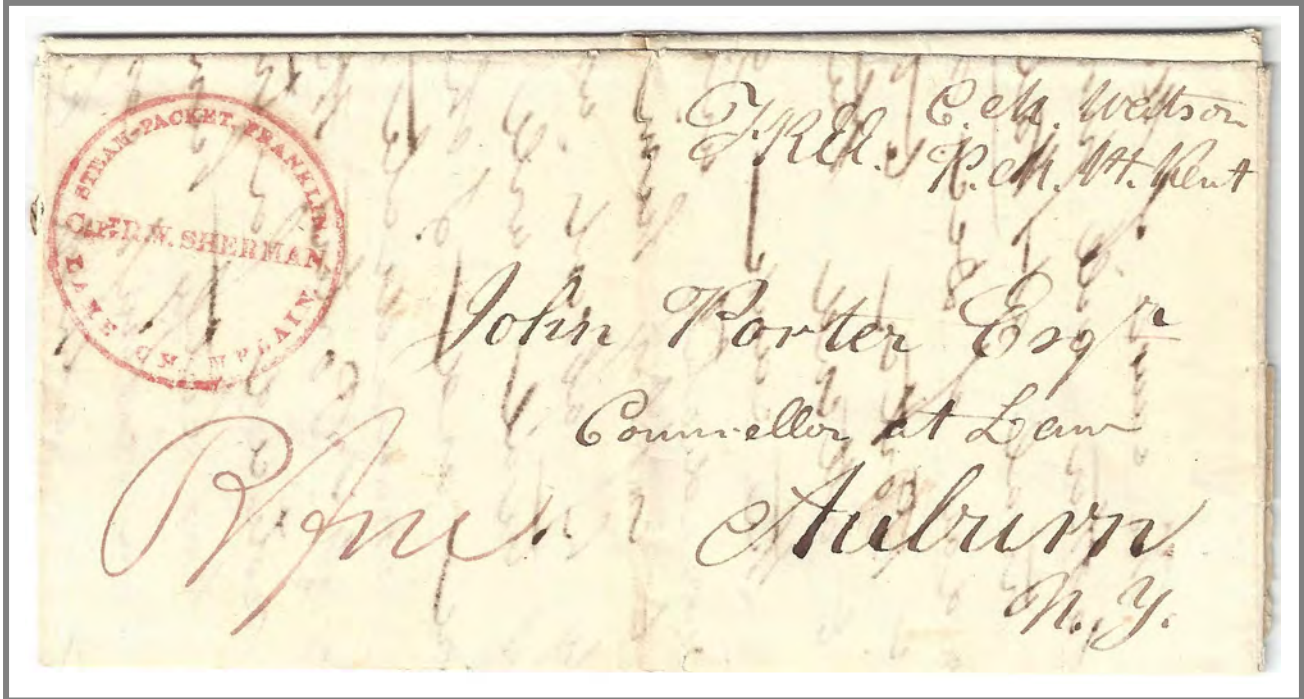 STEAM-PACKET FRANKLIN,
CAPT. R.W. SHERMAN
LAKE CHAMPLAIN
FREE.
P.M.
John Porter Esqr
Councellor at Law
Auburn
N.Y.